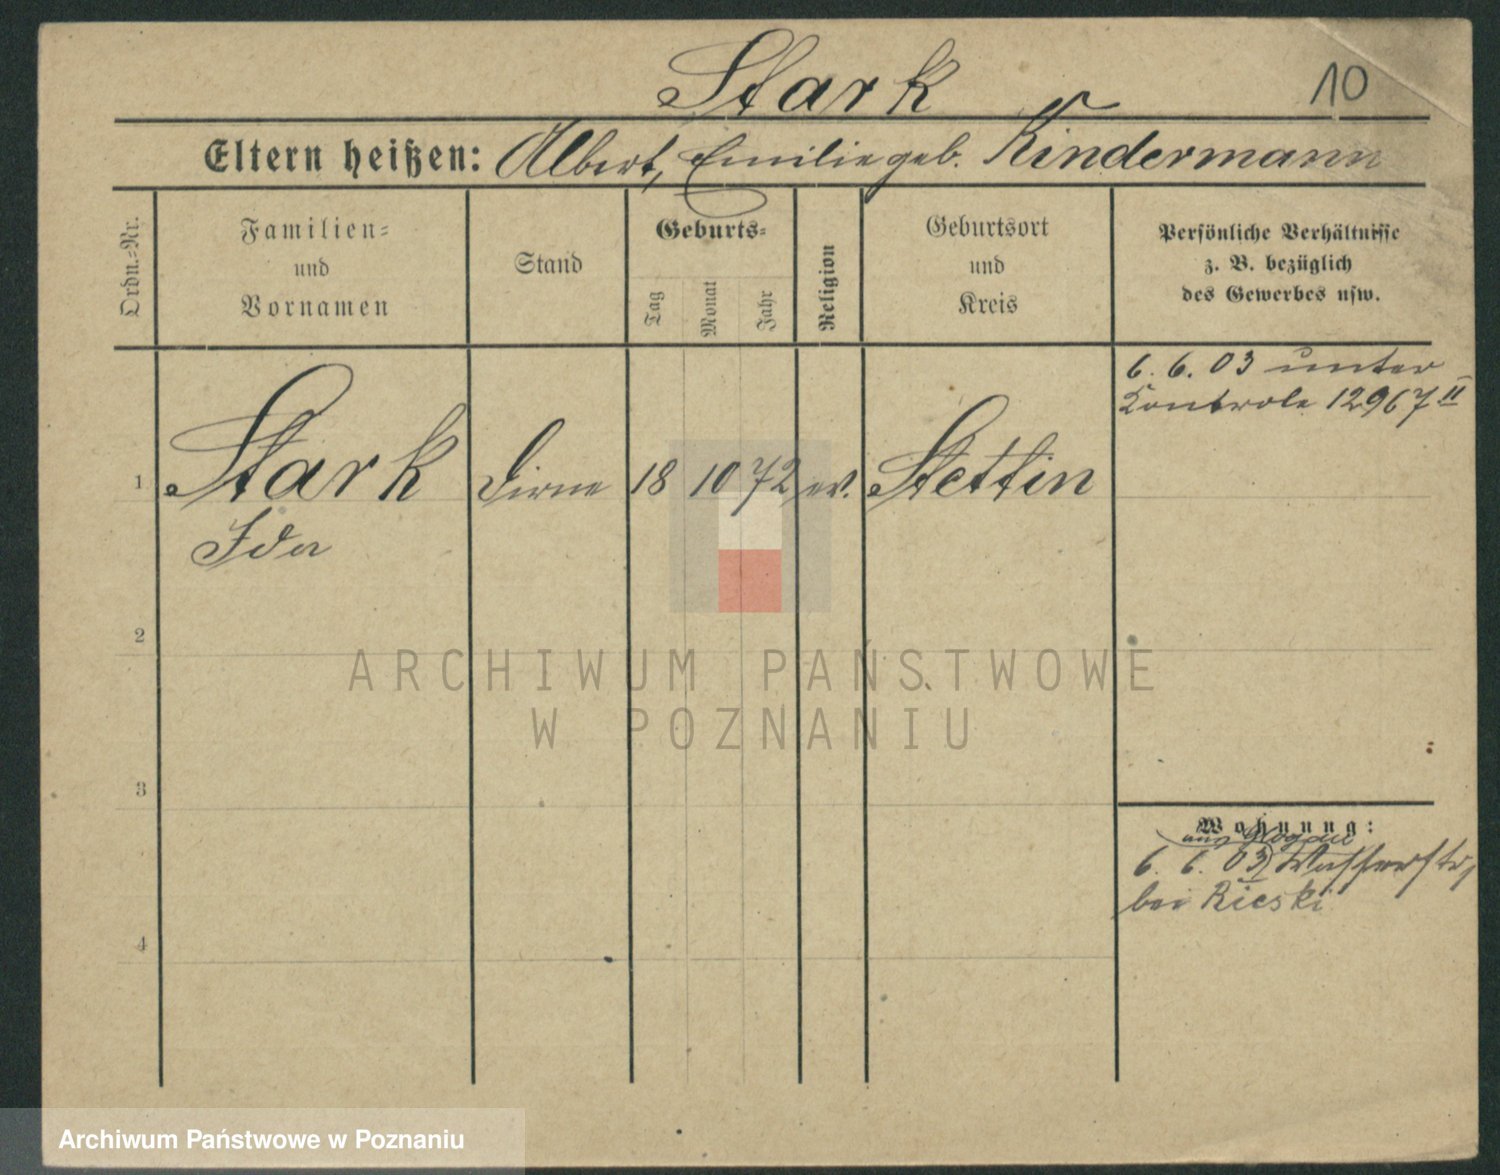 10
Stark
Eltern heißen: Albert, Emilie geb. Kindermann
Ordn.-Nr.
Familien-
und
Vornamen
Stand
Geburts-
Tag
Monat
Jahr
Religion
Geburtsort
und
Kreis
Persönliche Verhältnisse
z. B. bezüglich
des Gewerbes usw.
1
Stark
Ida
Dirne
18
10
72
ev.
Stettin
6. 6. 03 unter
Kontrole 12967 II
2
3
4
Wohnung:
aus Glogau
6. 6. 03 Wasserstr,
bei Rieski
ARCHIWUM PAŃSTWOWE
W POZNANIU
Archiwum Państwowe w Poznaniu